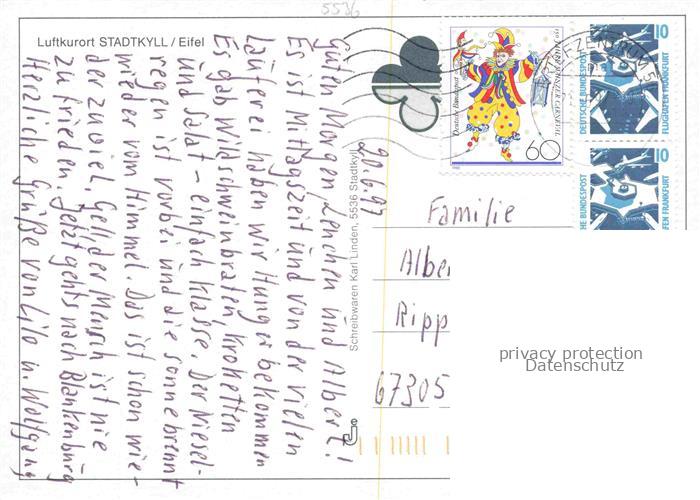 5536
Luftkurort STADTKYLL / Eifel
Guten Morgen Lenchen und Albert!
Es ist Mittagszeit und von der vielen
Lauferei haben wir Hunger bekommen
Es gab Wildschweinbraten, Kroketten
und Salat - einfach Klasse. Der Niesel-
regen ist vorbei und die Sonne brennt
wieder vom Himmel. Das ist schon wie-
der zuviel. Gell, der Mensch ist nie
zu frieden. Jetzt gehts nach Blankenburg
Herzliche Grüße von Lilo u. Wolfgang
20.6.97
Schreibwaren Karl Linden, 5536 Stadtkyll
150 JAHRE MAINZER CARNEVAL
Deutsche Bundespost
60
10
DEUTSCHE BUNDESPOST
FLUGHAFEN FRANKFURT
10
HE BUNDESPOST
FEN FRANKFURT
Familie
Albe
Ripp
67305
privacy protection
Datenschutz